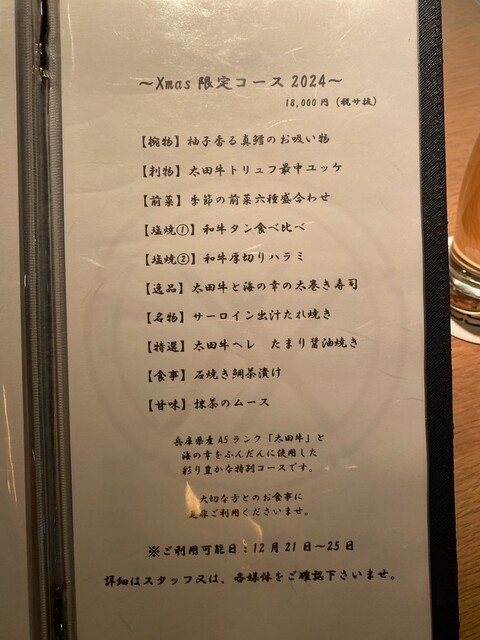 ～Xmas 限定コース 2024～
18,000円（税サ抜）
【椀物】柚子香る真鱈のお吸い物
【刺物】太田牛トリュフ最中ユッケ
【前菜】季節の前菜六種盛合わせ
【塩焼①】和牛タン食べ比べ
【塩焼②】和牛厚切りハラミ
【逸品】太田牛と海の幸の太巻き寿司
【名物】サーロイン出汁たれ焼き
【特選】太田牛ヘレ　たまり醤油焼き
【食事】石焼き鯛茶漬け
【甘味】抹茶のムース
兵庫県産A5ランク「太田牛」と
海の幸をふんだんに使用した
彩り豊かな特別コースです。
大切な方とのお食事に
是非ご利用くださいませ。
※ご利用可能日：12月21日～25日
詳細はスタッフ又は、各媒体をご確認下さいませ。